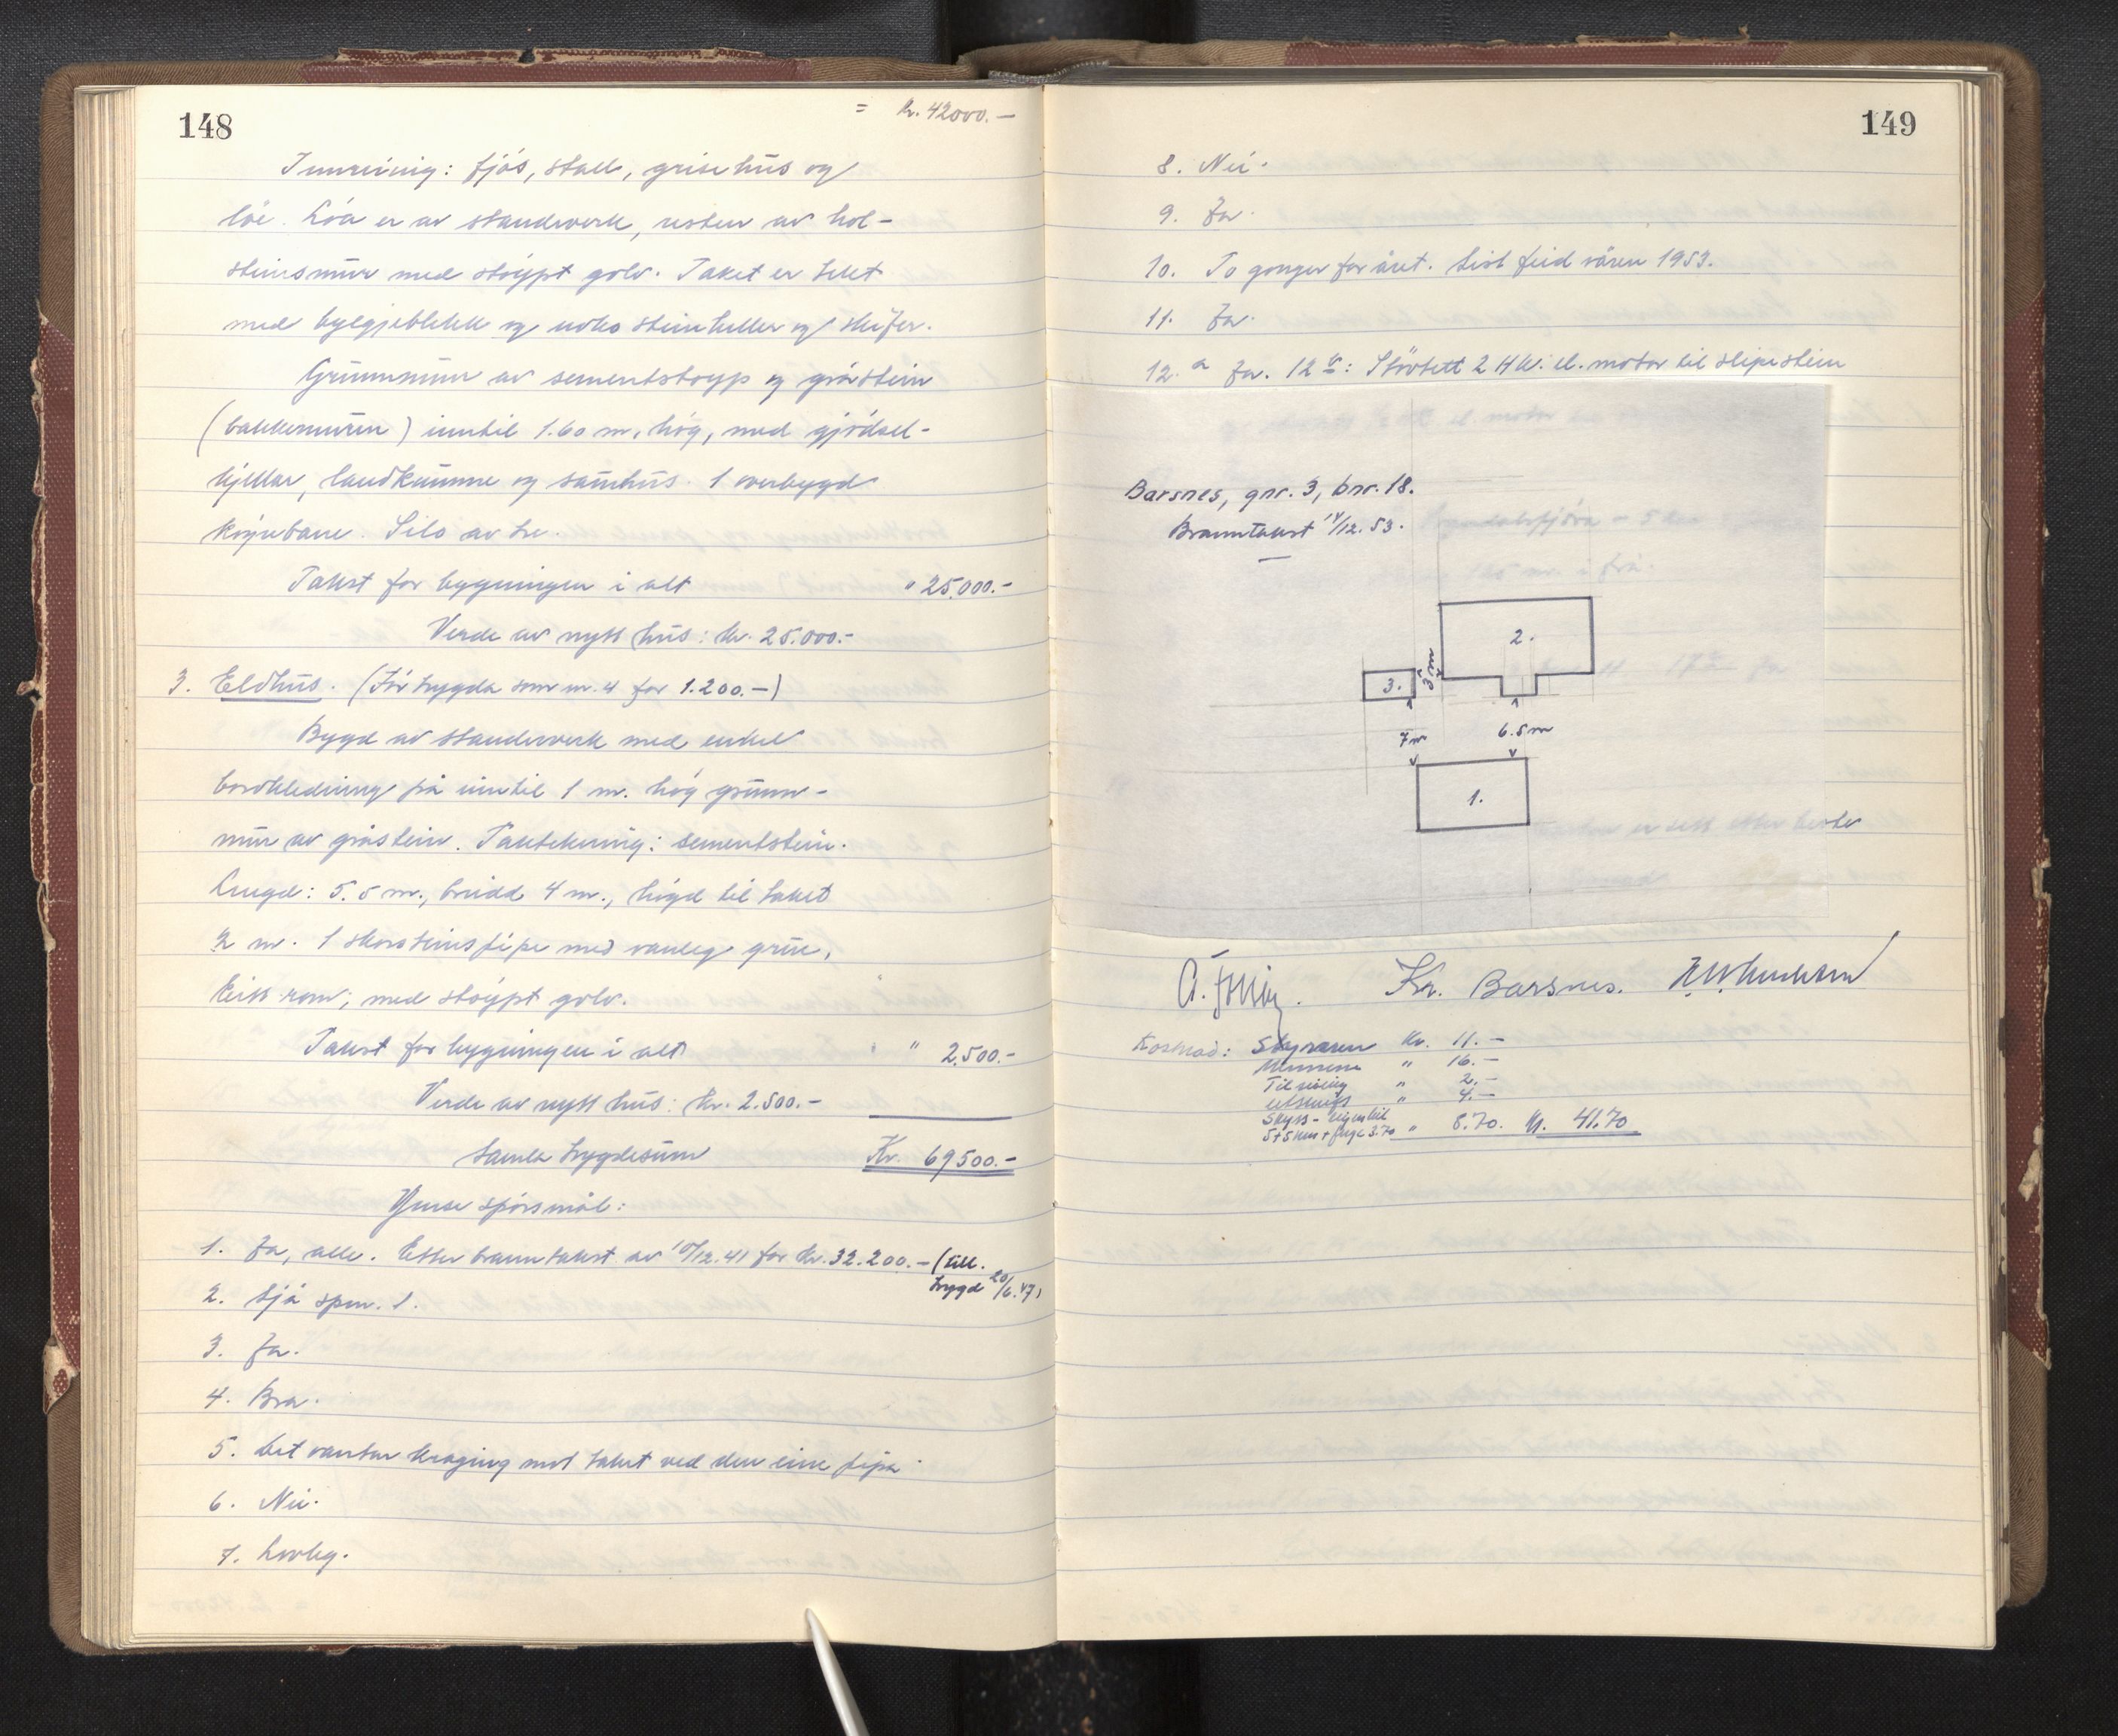 148
= kr. 42000.-
Innreiing: fjøs, stall, grisehus og
løe. Løa er av standverk, resten av hol-
steinsmur med støypt golv. Taket er tekt
med bylgjeblekk og noko steinheller og skifer.
Grunnmur av sementstøyp og gråstein
(bakkemuren) inntil 1.60 m. høg, med gjødsel-
kjellar, landkumme og sauhus. 1 overbygd
køyrebane. Silo av tre.
Takst for bygningen i alt " 25.000.-
Verde av nytt hus: kr. 25.000.-
3. Eldhus. (Før trygda som nr. 4 for 1.200.-)
Bygd av standverk med enkel
bordkledning på inntil 1 m. høg grunn-
mur av gråstein. Taktekking: sementstein.
Lengd: 5.5 m., breidd 4 m., høgd til taket
2 m. 1 skorsteinspipe med vanleg grue.
Eitt rom, med støypt golv.
Takst for bygningen i alt " 2.500.-
Verde av nytt hus: kr. 2.500.-
Samla trygdesum Kr. 69500.-
Ymse spørsmål:
1. Ja, alle. Etter branntakst av 10/12.41 for kr. 32.200.- (till.
trygd 20/6.47)
2. Sjå spm. 1.
3. Ja.
4. Bra.
5. Det vantar kraging mot taket ved den eine pipa.
6. Nei.
7. Lovleg.
149
8. Nei.
9. Ja.
10. To gonger for året. Sist feid våren 1953.
11. Ja.
12. a Ja. 12 b: Støvtett 2 HK. el. motor til slipestein
Barsnes, gnr. 3, bnr. 18.
Branntakst 14/12.53.
2.
3.
3 m
7 m
6.5 m
1.
Kr. Barsnes.
Kostnad: Styraren kr. 11.-
Mennene " 16.-
Tilreiing " 2.-
Utskrift " 4.-
Skyss - eigen bil
5+5 km + ferje 3.70 " 8.70. Kr. 41.70